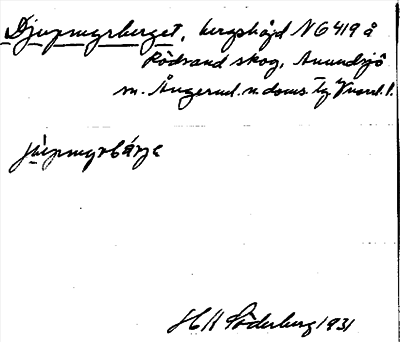 Djupmyrberget, bergshöjd N 6419 å
Rödvand skog, Anundsjö
sn. Ångerml. n. doms. Tg Vnorrl. l.
jupmyrbärje
H Söderberg 1931